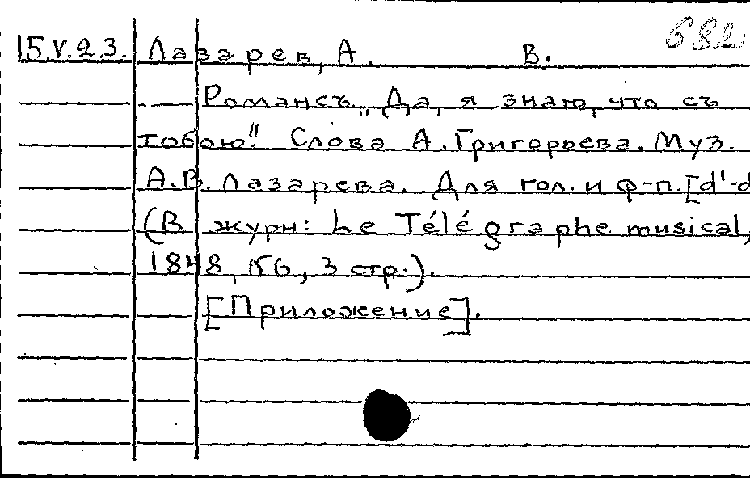 15.V.23. Лазарев, А. В. 682
Романсъ „Да, я знаю, что съ
тобою". Слова А. Григорьева. Муз.
А.В. Лазарева. Для гол. и ф-п. [d'-d
(В журн: Le Télégraphe musical,
1848, №6, 3 стр.).
[Приложение].